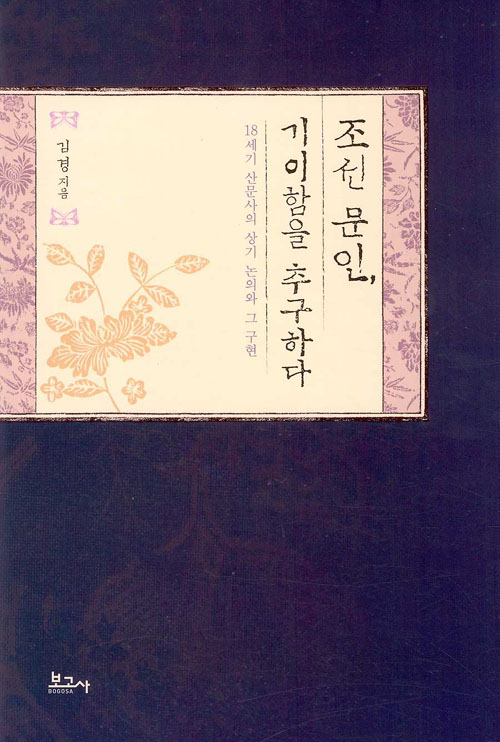 조선 문인,
기이함을 추구하다
18세기 산문사의 상기 논의와 그 구현
김경 지음
보고사
BOGOSA